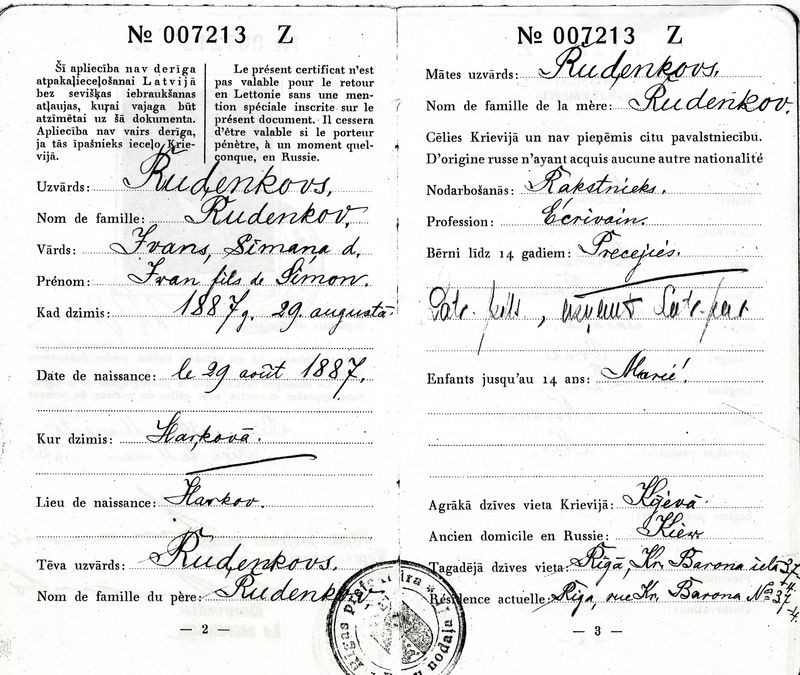 № 007213 Z
Šī apliecība nav derīga
atpakaļieceļošanai Latvijā
bez sevišķas iebraukšanas
atļaujas, kuŗai vajaga būt
atzīmētai uz šā dokumenta.
Apliecība nav vairs derīga,
ja tās īpašnieks ieceļo Krie-
vijā.
Le présent certificat n'est
pas valable pour le retour
en Lettonie sans une men-
tion spéciale inscrite sur le
présent document. Il cessera
d'être valable si le porteur
pénètre, à un moment quel-
conque, en Russie.
Uzvārds: Rudenkovs.
Nom de famille: Rudenkov.
Vārds: Ivans, Sīmaņa d.
Prénom: Ivan fils de Simon.
Kad dzimis: 1887g. 29. augustā
Date de naissance: le 29 août 1887.
Kur dzimis: Harkovā.
Lieu de naissance: Harkov.
Tēva uzvārds: Rudenkovs.
Nom de famille du père: Rudenkov
— 2 —
№ 007213 Z
Mātes uzvārds: Rudenkovs.
Nom de famille de la mère: Rudenkov.
Cēlies Krievijā un nav pieņēmis citu pavalstniecību.
D'origine russe n'ayant acquis aucune autre nationalité
Nodarbošanās: Rakstnieks.
Profession: Écrivain.
Bērni līdz 14 gadiem: Precejies.
Enfants jusqu'au 14 ans: Marié!
Agrākā dzīves vieta Krievijā: Kijevā
Ancien domicile en Russie: Kiew
Tagadējā dzīves vieta: Rīgā, Kr. Barona ielā 37
Résidence actuelle: Riga, rue Kr. Barona № 37
— 3 —
Rīgas prefektūra
nodaļa